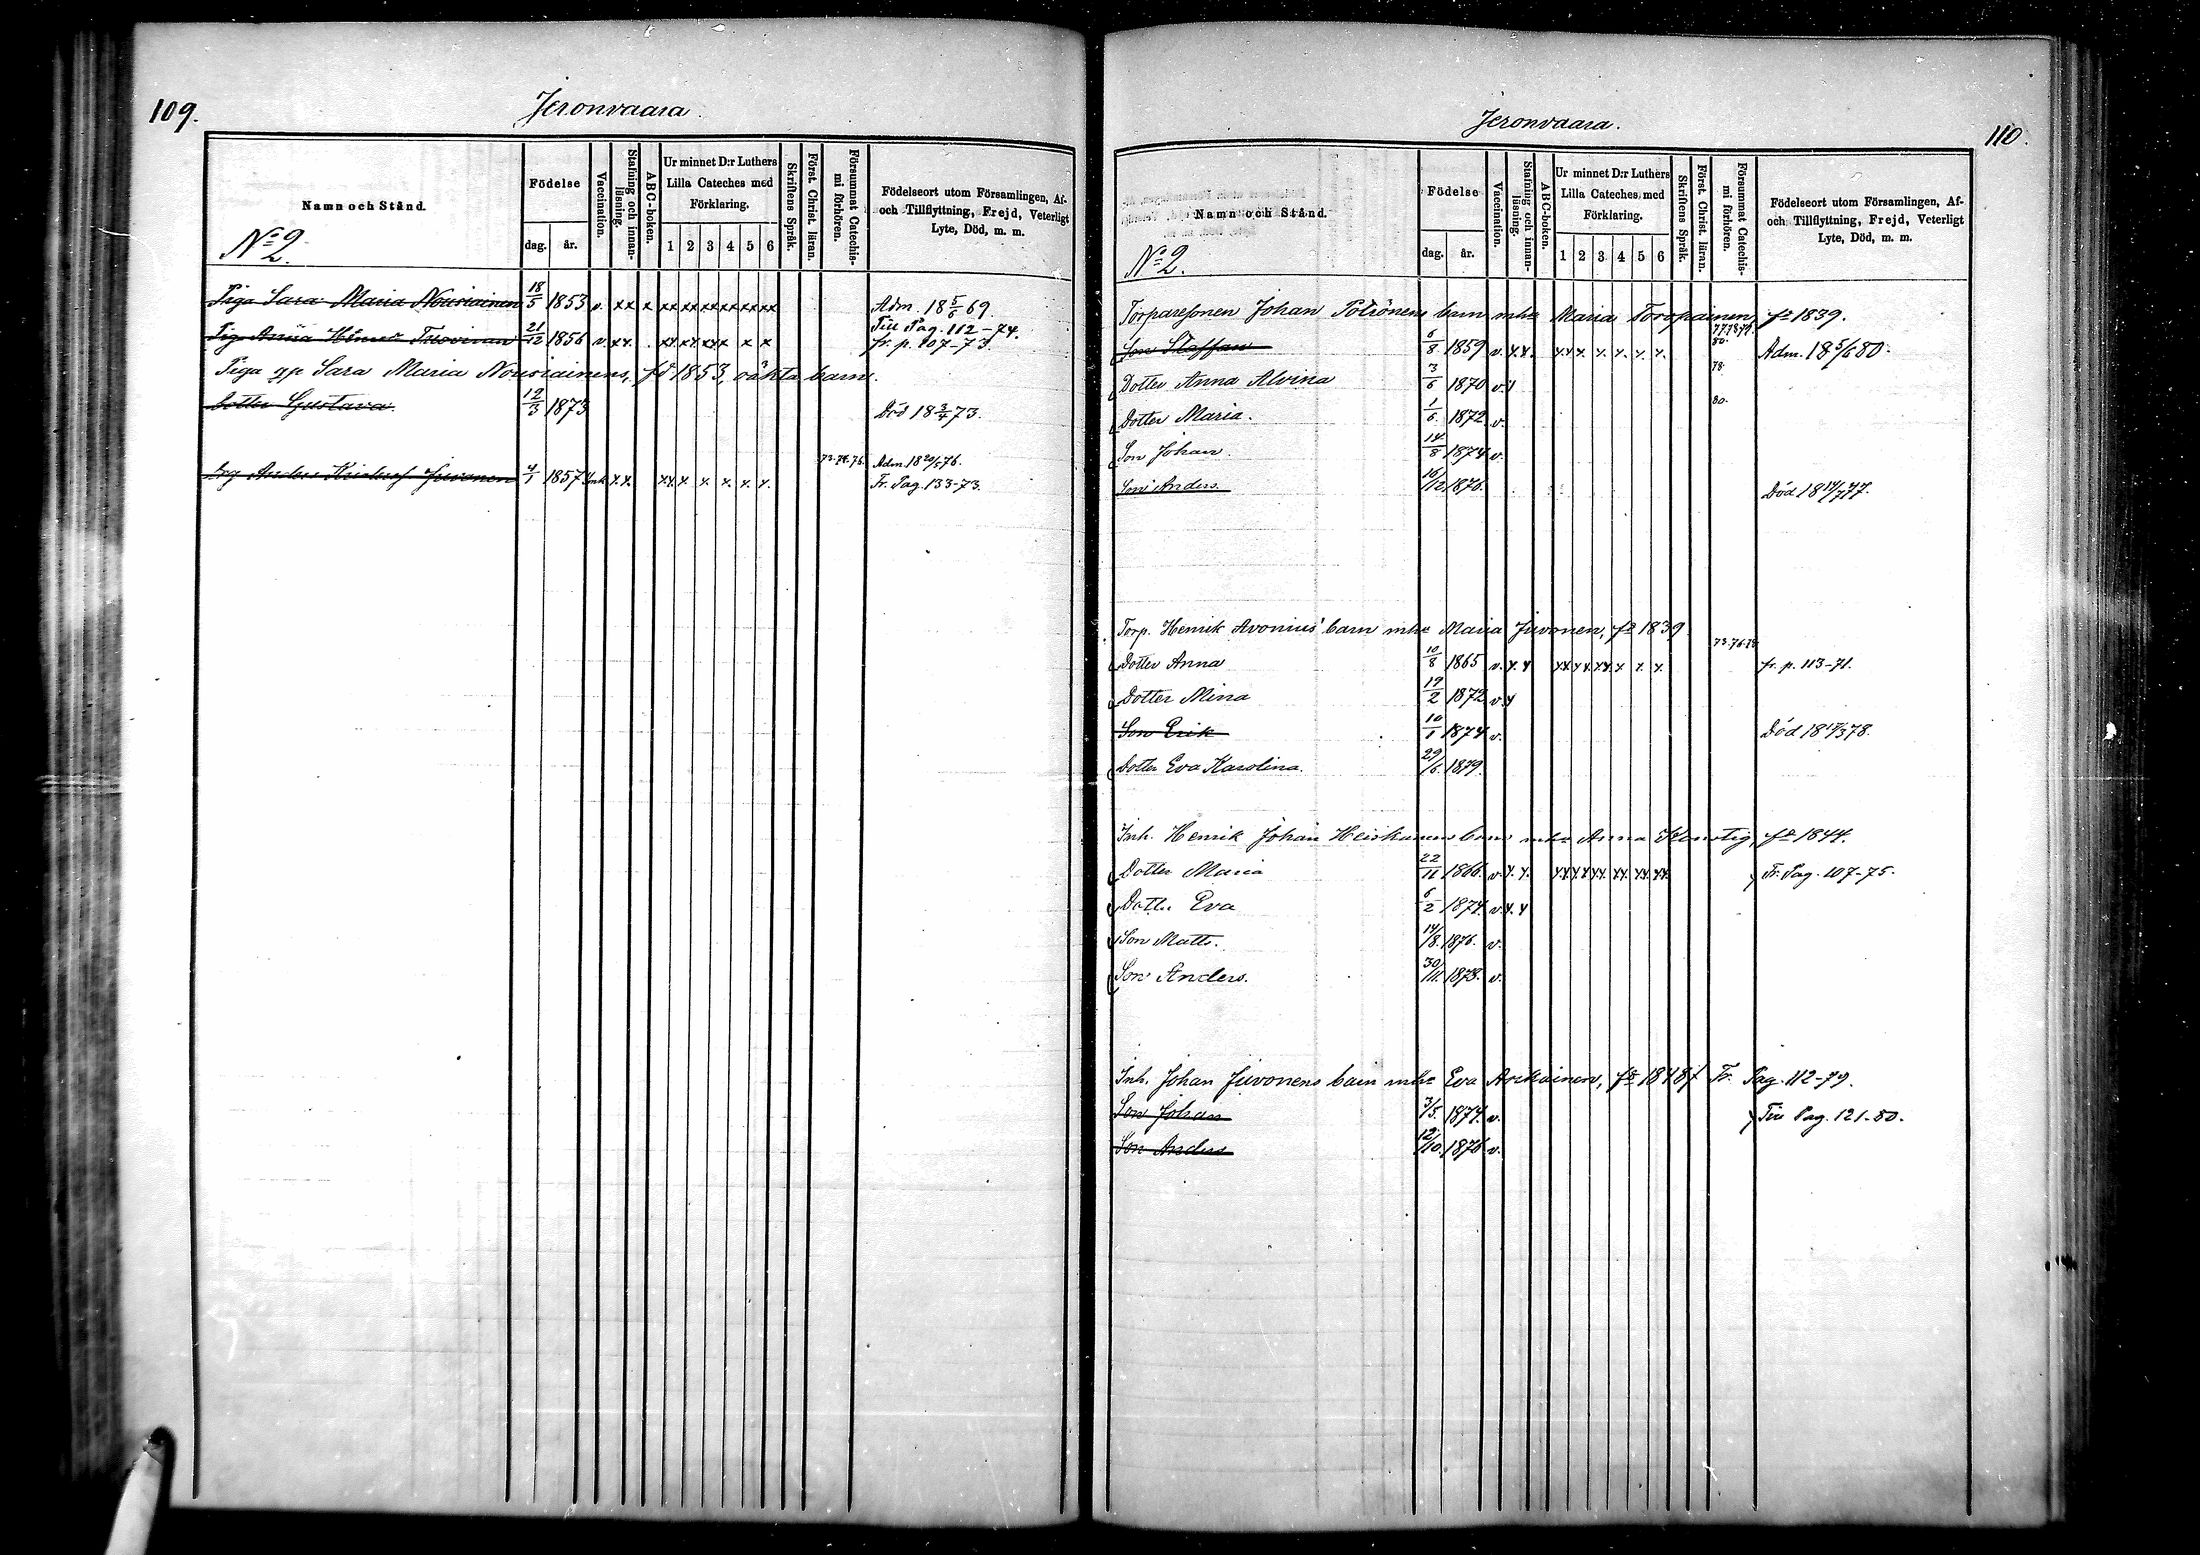 109.
Jeronvaara.
Namn och Stånd.
No 2.
Födelse
dag.
år.
Vaccination.
Stafning och innanläsning.
ABC-boken.
Ur minnet D:r Luthers Lilla Cateches med Förklaring.
1 2 3 4 5 6
Skriftens Språk.
Först. Christ. läran.
Försummat Catechismi förhören.
Födelseort utom Församlingen, Af- och Tillflyttning, Frejd, Veterligt Lyte, Död, m. m.
Piga Sara Maria Nousiainen 18/5 1853 v. xx x xx xx xx xx xx xx Adm. 18 5/6 69.
Till Pag. 112-74.
21/12 1856 v. xx. xx. x. xx x x x fr. p. 107-73.
Piga Sara Maria Nousiainens, fd 1853, oäkta barn.
Dotter Gustava. 12/3 1873 Död 18 3/4 73.
73.74.76. Adm. 18 20/5 76.
Anders Juvonen 4/1 1857 x.x. x.x. x x. x. x. x. Fr. Pag. 133-73.
110.
Jeronvaara.
Namn och Stånd.
No 2.
Födelse
dag.
år.
Vaccination.
Stafning och innanläsning.
ABC-boken.
Ur minnet D:r Luthers Lilla Cateches med Förklaring.
1 2 3 4 5 6
Skriftens Språk.
Först. Christ. läran.
Försummat Catechismi förhören.
Födelseort utom Församlingen, Af- och Tillflyttning, Frejd, Veterligt Lyte, Död, m. m.
Johan barn mha Maria Toropainen, fd 1839.
80.
Son Staffan 6/8 1859 v. x.x. x.x x. x. x. x. x. Adm. 18 5/6 80.
78.
Dotter Anna Alvina 3/6 1870 v.
80.
Dotter Maria. 1/6 1872 v.
Son Johan 14/8 1874 v.
Son Anders. 16/12 1876. Död 18 14/7 77.
Torp. Henrik Avonius' barn mha Maria Juvonen, fd 1839
Dotter Anna 10/8 1865 v. x. x xx xx xx x x. x. fr. p. 113-71.
Dotter Mina 19/2 1872 v.
Son Erik 10/1 1874 v. Död 18 78.
Dotter Eva Karolina. 29/6 1879.
Inh. Henrik Johan Heiskanens barn mha Anna fd 1844.
Dotter Maria 22/11 1866. v. x. x. xx xx xx. xx. xx. xx. Fr. Pag. 107-75.
Dotter Eva 6/2 1874. v. x. x
Son Matts. 14/8 1876. v.
Son Anders. 30/11 1878. v.
Inh. Johan Juvonens barn mha Eva fd 1848 Fr. Pag. 112-79.
Son Johan 3/5 1874. v. Till Pag. 121-80.
Son Anders 12/10 1876 v.